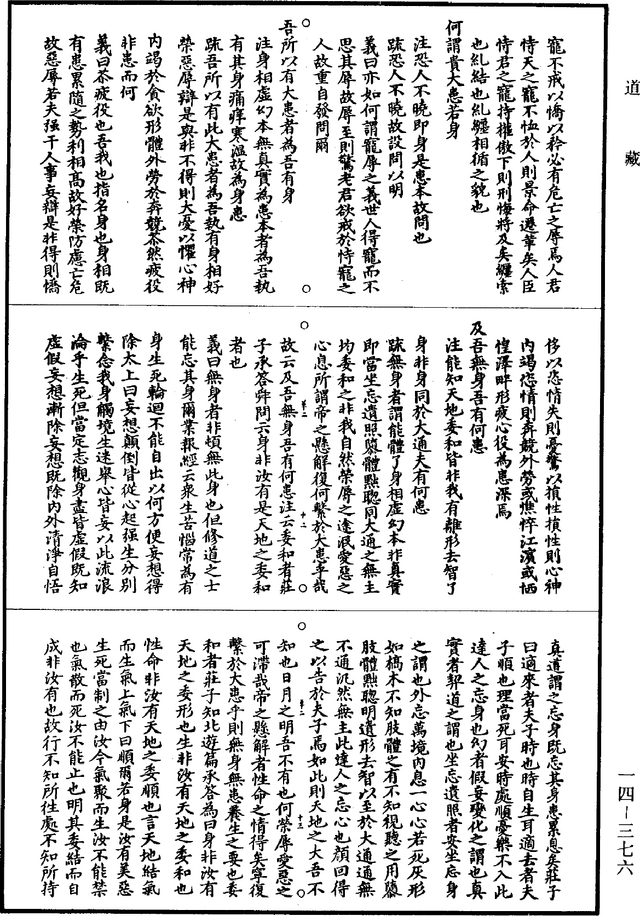 道藏
寵不戒以憍以矜必有危亡之辱焉人君
恃天之寵不恤於人則景命遷革矣人臣
恃君之寵持權傲下則刑悔將及矣纏索
也糺結也糺纏相循之貌也
何謂貴大患若身
注恐人不曉即身是患本故問也
疏恐人不曉故設問以明
義曰亦如何謂寵辱之義世人得寵而不
思其辱故辱至則驚老君欲戒於恃寵之
人故重自發問爾
吾所以有大患者為吾有身
注身相虛幻本無真實為患本者為吾執
有其身痛痒寒溫故為身患
疏吾所以有此大患者為吾執有身相好
榮惡辱辯是與非不得則大憂以懼心神
內竭於貪欲形體外勞於奔競苶然疲役
非患而何
義曰苶疲役也吾我也指名身也身相既
有患累隨之勢利相高故好榮防慮亡危
故惡辱若夫強干人事妄辯是非得則憍
侈以恣情失則憂驚以損性損性則心神
內竭恣情則奔競外勞或憔悴江濱或恓
惶澤畔形疲心役為患深焉
及吾無身吾有何患
注能知天地委和皆非我有離形去智了
身非身同於大通夫有何患
疏無身者謂能體了身相虛幻本非真實
即當坐忘遺照隳體黜聰同大通之無主
均委和之非我自然榮辱之途泯愛惡之
心息所謂帝之懸解復何繫於大患乎哉
故云及吾無身吾有何患注云委和者莊
子承答舜問云身非汝有是天地之委和
者也
義曰無身者非頓無此身也但修道之士
能忘其身爾業報經云衆生苦惱常為有
身生死輪迴不能自出以何方便妄想得
除太上曰妄想顛倒皆從心起强生分別
繫念我身觸境生迷舉心皆妄以此流浪
淪乎生死但當定志觀身盡皆虛假既知
虛假妄想漸除妄想既除內外清淨自悟
真道謂之忘身既忘其身患累息矣莊子
曰適來者夫子時也時自生耳適去者夫
子順也理當死耳安時處順憂樂不入此
達人之忘身也幻者假妄變化之謂也真
實者契道之謂也坐忘遺照者安坐忘身
之謂也外忘萬境內息一心心若死灰形
如槁木不知肢體之有不知視聽之用隳
肢體黜聰明遺形去智以至於大通通無
不通汎然無主此達人之忘心也顏回得
之以告於夫子焉如此則天地之大吾不
知也日月之明吾不有也何榮辱愛惡之
可滯哉帝之懸解者性命之情得矣寧復
繫於大患乎則無身無患養生之要也委
和者莊子知北遊篇承答為曰身非汝有
天地之委形也生非汝有天地之委和也
性命非汝有天地之委順也言天地結氣
而生氣上氣下曰順爾若身是汝有美惡
生死當制之由汝今氣聚而生汝不能禁
也氣散而死汝不能止也明其委結而自
成非汝有也故行不知所往處不知所持
一四－三七六